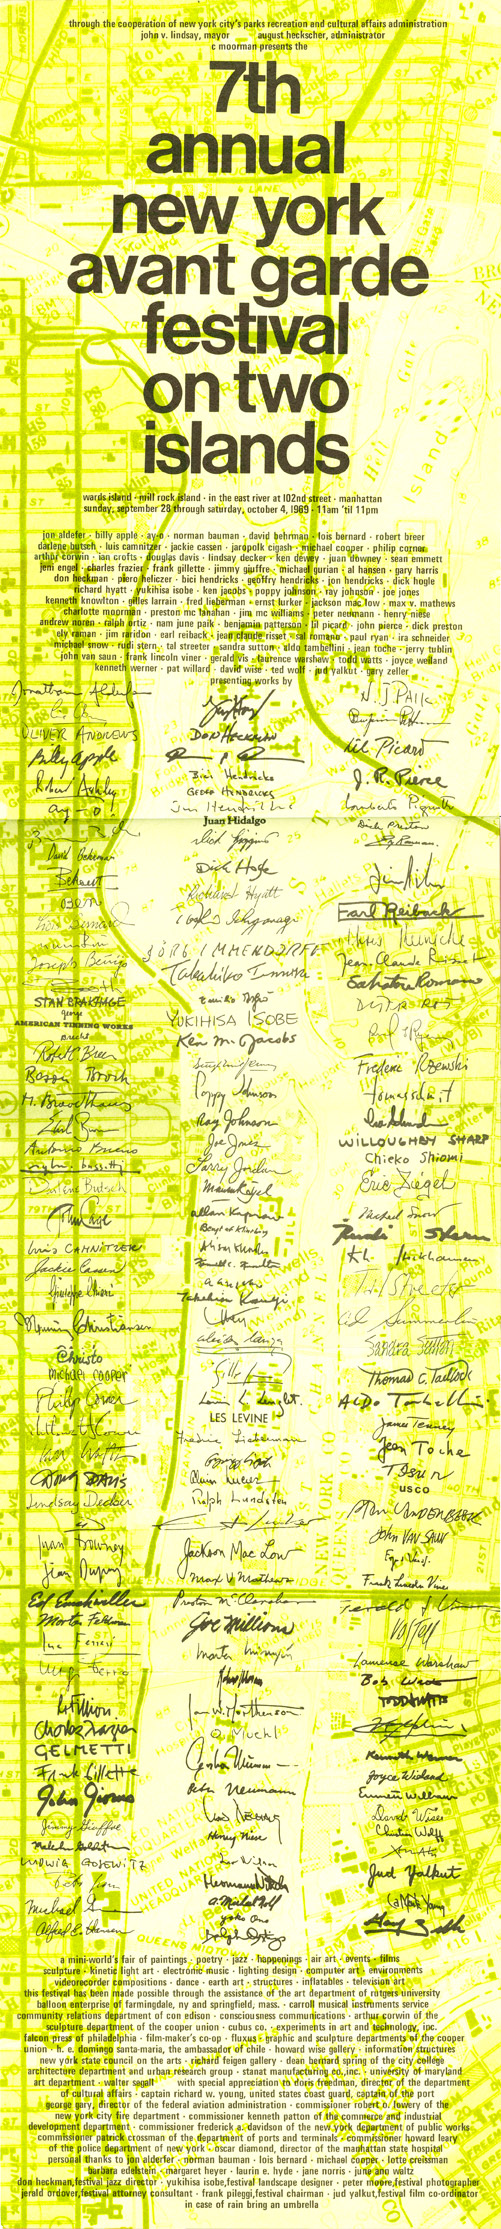 through the cooperation of new york city's parks recreation and cultural affairs administration
john v. lindsay, mayor august heckscher, administrator
c moorman presents the
7th
annual
new york
avant garde
festival
on two
islands
wards island · mill rock island · in the east river at 102nd street · manhattan
sunday, september 28 through saturday, october 4, 1969 · 11am 'til 11pm
jon aldefer · billy apple · ay-o · norman bauman · david behrman · lois bernard · robert breer
darlene butsch · luis camnitzer · jackie cassen · jaropolk cigash · michael cooper · philip corner
arthur corwin · ian crofts · douglas davis · lindsay decker · ken dewey · juan downey · sean emmett
jem engel · charles frazier · frank gillette · jimmy giuffre · michael gurian · al hansen · gary harris
don heckman · piero heliczer · bici hendricks · geoffry hendricks · jon hendricks · dick hogle
richard hyatt · yukihisa isobe · ken jacobs · poppy johnson · ray johnson · joe jones
kenneth knowlton · gilles larrain · fred lieberman · ernst lurker · jackson mac low · max v. mathews
charlotte moorman · preston mc lanahan · jim mc williams · peter neumann · henry niese
andrew noren · ralph ortiz · nam june paik · benjamin patterson · lil picard · john pierce · dick preston
ely raman · jim raridon · earl reiback · jean claude risset · sal romano · paul ryan · ira schneider
michael snow · rudi stern · tal streeter · sandra sutton · aldo tambellini · jean toche · jerry tublin
john van saun · frank lincoln viner · gerald vis · laurence warshaw · todd watts · joyce weiland
kenneth werner · pat willard · david wise · ted wolf · jud yalkut · gary zeller
presenting works by
Jonathan Aldefer
OLIVER ANDREWS
Billy Apple
Robert Ashley
ay-o
David Behrman
Lois Bernard
Joseph Beuys
STAN BRAKHAGE
george
AMERICAN TINNING WORKS
brecht
Robert Breer
Antonio Bueno
Darlene Butsch
LUIS CAMNITZER
Jackie Cassen
Giuseppe Chiari
Henning Christiansen
Christo
Michael Cooper
Philip Corner
DOUG DAVIS
Lindsay Decker
Juan Downey
Ed Emshwiller
Morton Feldman
Luc Ferrari
Charles Frazier
GELMETTI
Frank Gillette
John Giorno
Jimmy Giuffre
Malcolm Goldstein
LUDWIG GOSEWITZ
Alfred E. Hansen
DON HECKMAN
Bici Hendricks
GEOFF HENDRICKS
Jon Hendricks
Juan Hidalgo
Dick Higgins
Dick Hogle
Richard Hyatt
JÖRG IMMENDORFF
Takehiko Iimura
YUKIHISA ISOBE
Ken M. Jacobs
Poppy Johnson
Ray Johnson
Joe Jones
Larry Jordan
Mauricio Kagel
Allan Kaprow
Bengt af Klintberg
Alison Knowles
LES LEVINE
Fredric Lieberman
Alvin Lucier
Ralph Lundsten
Jackson Mac Low
Max V Mathews
Preston McClanahan
Joe Millions
O. Muehl
Peter Neumann
Henry Niese
Hermann Nitsch
yoko ono
Ralph Ortiz
N. J. PAIK
Lil Picard
J. R. Pierce
Dick Preston
Earl Reiback
Jean-Claude Risset
Salvatore Romano
DIETER ROT
Frederic Rzewski
WILLOUGHBY SHARP
Chieko Shiomi
Eric Siegel
Michael Snow
Rudi Stern
Tal Streeter
Sandra Sutton
Thomas C. Tadlock
ALDO Tambellini
James Tenney
Jean Toche
USCO
STAN VANDERBEEK
JOHN VAN SAUN
Frank Lincoln Viner
Vostell
Lawrence Warshaw
Bob Watts
TODD WATTS
Kenneth Werner
Joyce Wieland
Emmett Williams
David Wise
Christian Wolff
Jud Yalkut
La Monte Young
a mini-world's fair of paintings · poetry · jazz · happenings · air art · events · films
sculpture · kinetic light art · electronic music · lighting design · computer art · environments
videorecorder compositions · dance · earth art · structures · inflatables · television art
this festival has been made possible through the assistance of the art department of rutgers university
balloon enterprise of farmingdale, ny and springfield, mass. · carroll musical instruments service
community relations department of con edison · consciousness communications · arthur corwin of the
sculpture department of the cooper union · cubus co. · experiments in art and technology, inc.
falcon press of philadelphia · film-maker's co-op · fluxus · graphic and sculpture departments of the cooper
union · h. e. domingo santa-maria, the ambassador of chile · howard wise gallery · information structures
new york state council on the arts · richard feigen gallery · dean bernard spring of the city college
architecture department and urban research group · stanat manufacturing co., inc. · university of maryland
art department · walter segall with special appreciation to doris freedman, director of the department
of cultural affairs · captain richard w. young, united states coast guard, captain of the port
george gary, director of the federal aviation administration · commissioner robert o. lowery of the
new york city fire department · commissioner kenneth patton of the commerce and industrial
development department · commissioner frederick a. davidson of the new york department of public works
commissioner patrick crossman of the department of ports and terminals · commissioner howard leary
of the police department of new york · oscar diamond, director of the manhattan state hospital
personal thanks to jon alderfer · norman bauman · lois bernard · michael cooper · lotte creissman
barbara edelstein · margaret heyer · laurin e. hyde · jane norris · june ann waltz
don heckman, festival jazz director · yukihisa isobe, festival landscape designer · peter moore, festival photographer
jerald ordover, festival attorney consultant · frank pileggi, festival chairman · jud yalkut, festival film co-ordinator
in case of rain bring an umbrella